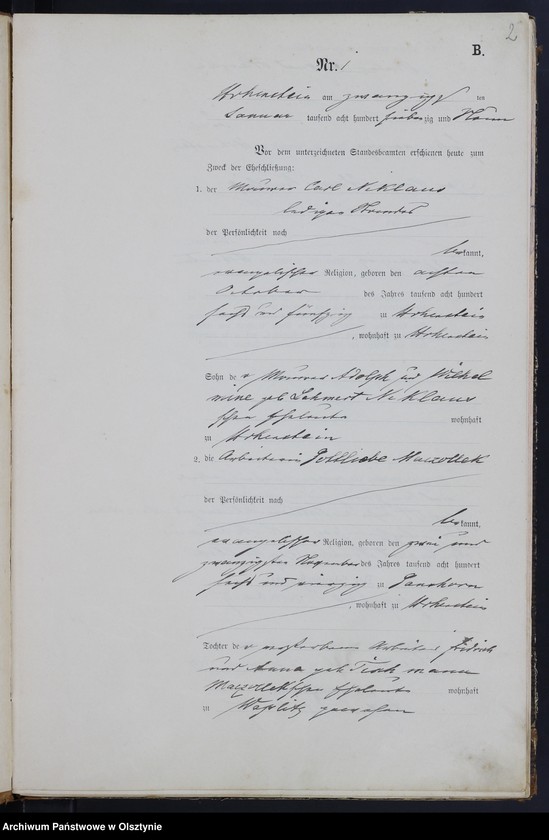 2
B.
Nr. 1
Hohenstein am zwanzigsten
Januar tausend acht hundert siebenzig und Neun
Vor dem unterzeichneten Standesbeamten erschienen heute zum
Zweck der Eheschließung:
1. der Maurer Carl Niklaus
ledigen Standes
der Persönlichkeit nach
bekannt,
evangelischer Religion, geboren den achten
October des Jahres tausend acht hundert
sechs und fünfzig zu Hohenstein
, wohnhaft zu Hohenstein
Sohn der Maurer Adolph und Wilhel
mine geb. Lehnert Niklaus
schen Eheleute wohnhaft
zu Hohenstein
2. die Arbeiterin Gottliebe Maczollek
der Persönlichkeit nach
bekannt,
evangelischer Religion, geboren den zwei und
zwanzigsten November des Jahres tausend acht hundert
sechs und vierzig zu
, wohnhaft zu Hohenstein
Tochter der verstorbenen Arbeiter Fridrich
und Anna geb. Tischmann
Maczollek'schen Eheleute wohnhaft
zu Waplitz gewesen
Archiwum Państwowe w Olsztynie